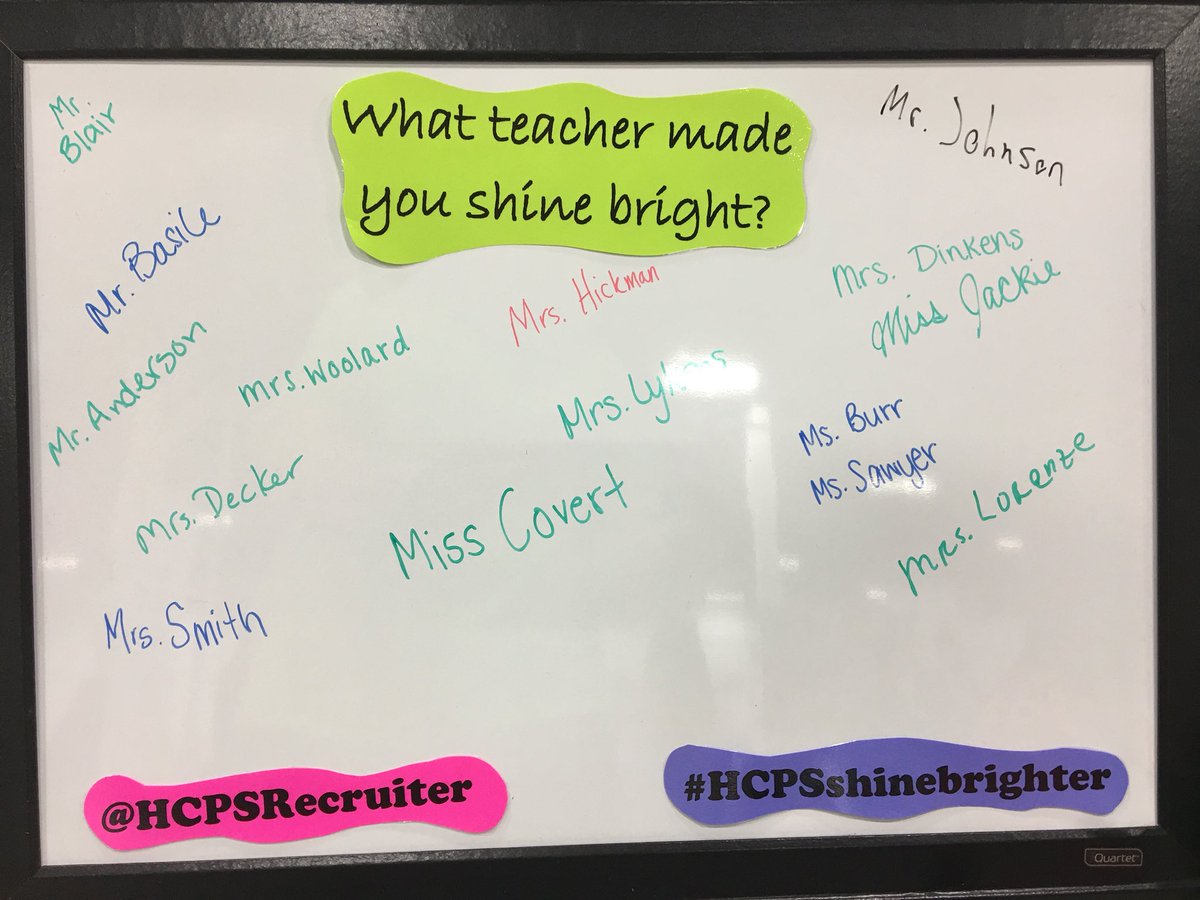 What teacher made
you shine bright?
Mr.
Blair
Mr. Johnson
Mr. Basile
Mrs. Hickman
Mrs. Dinkens
Miss Jackie
Mr. Anderson
Mrs. Woolard
Mrs.
Ms. Burr
Ms. Sawyer
Mrs. Decker
Miss Covert
Mrs. Lorenze
Mrs. Smith
@HCPSRecruiter
#HCPSshinebrighter
Quartet